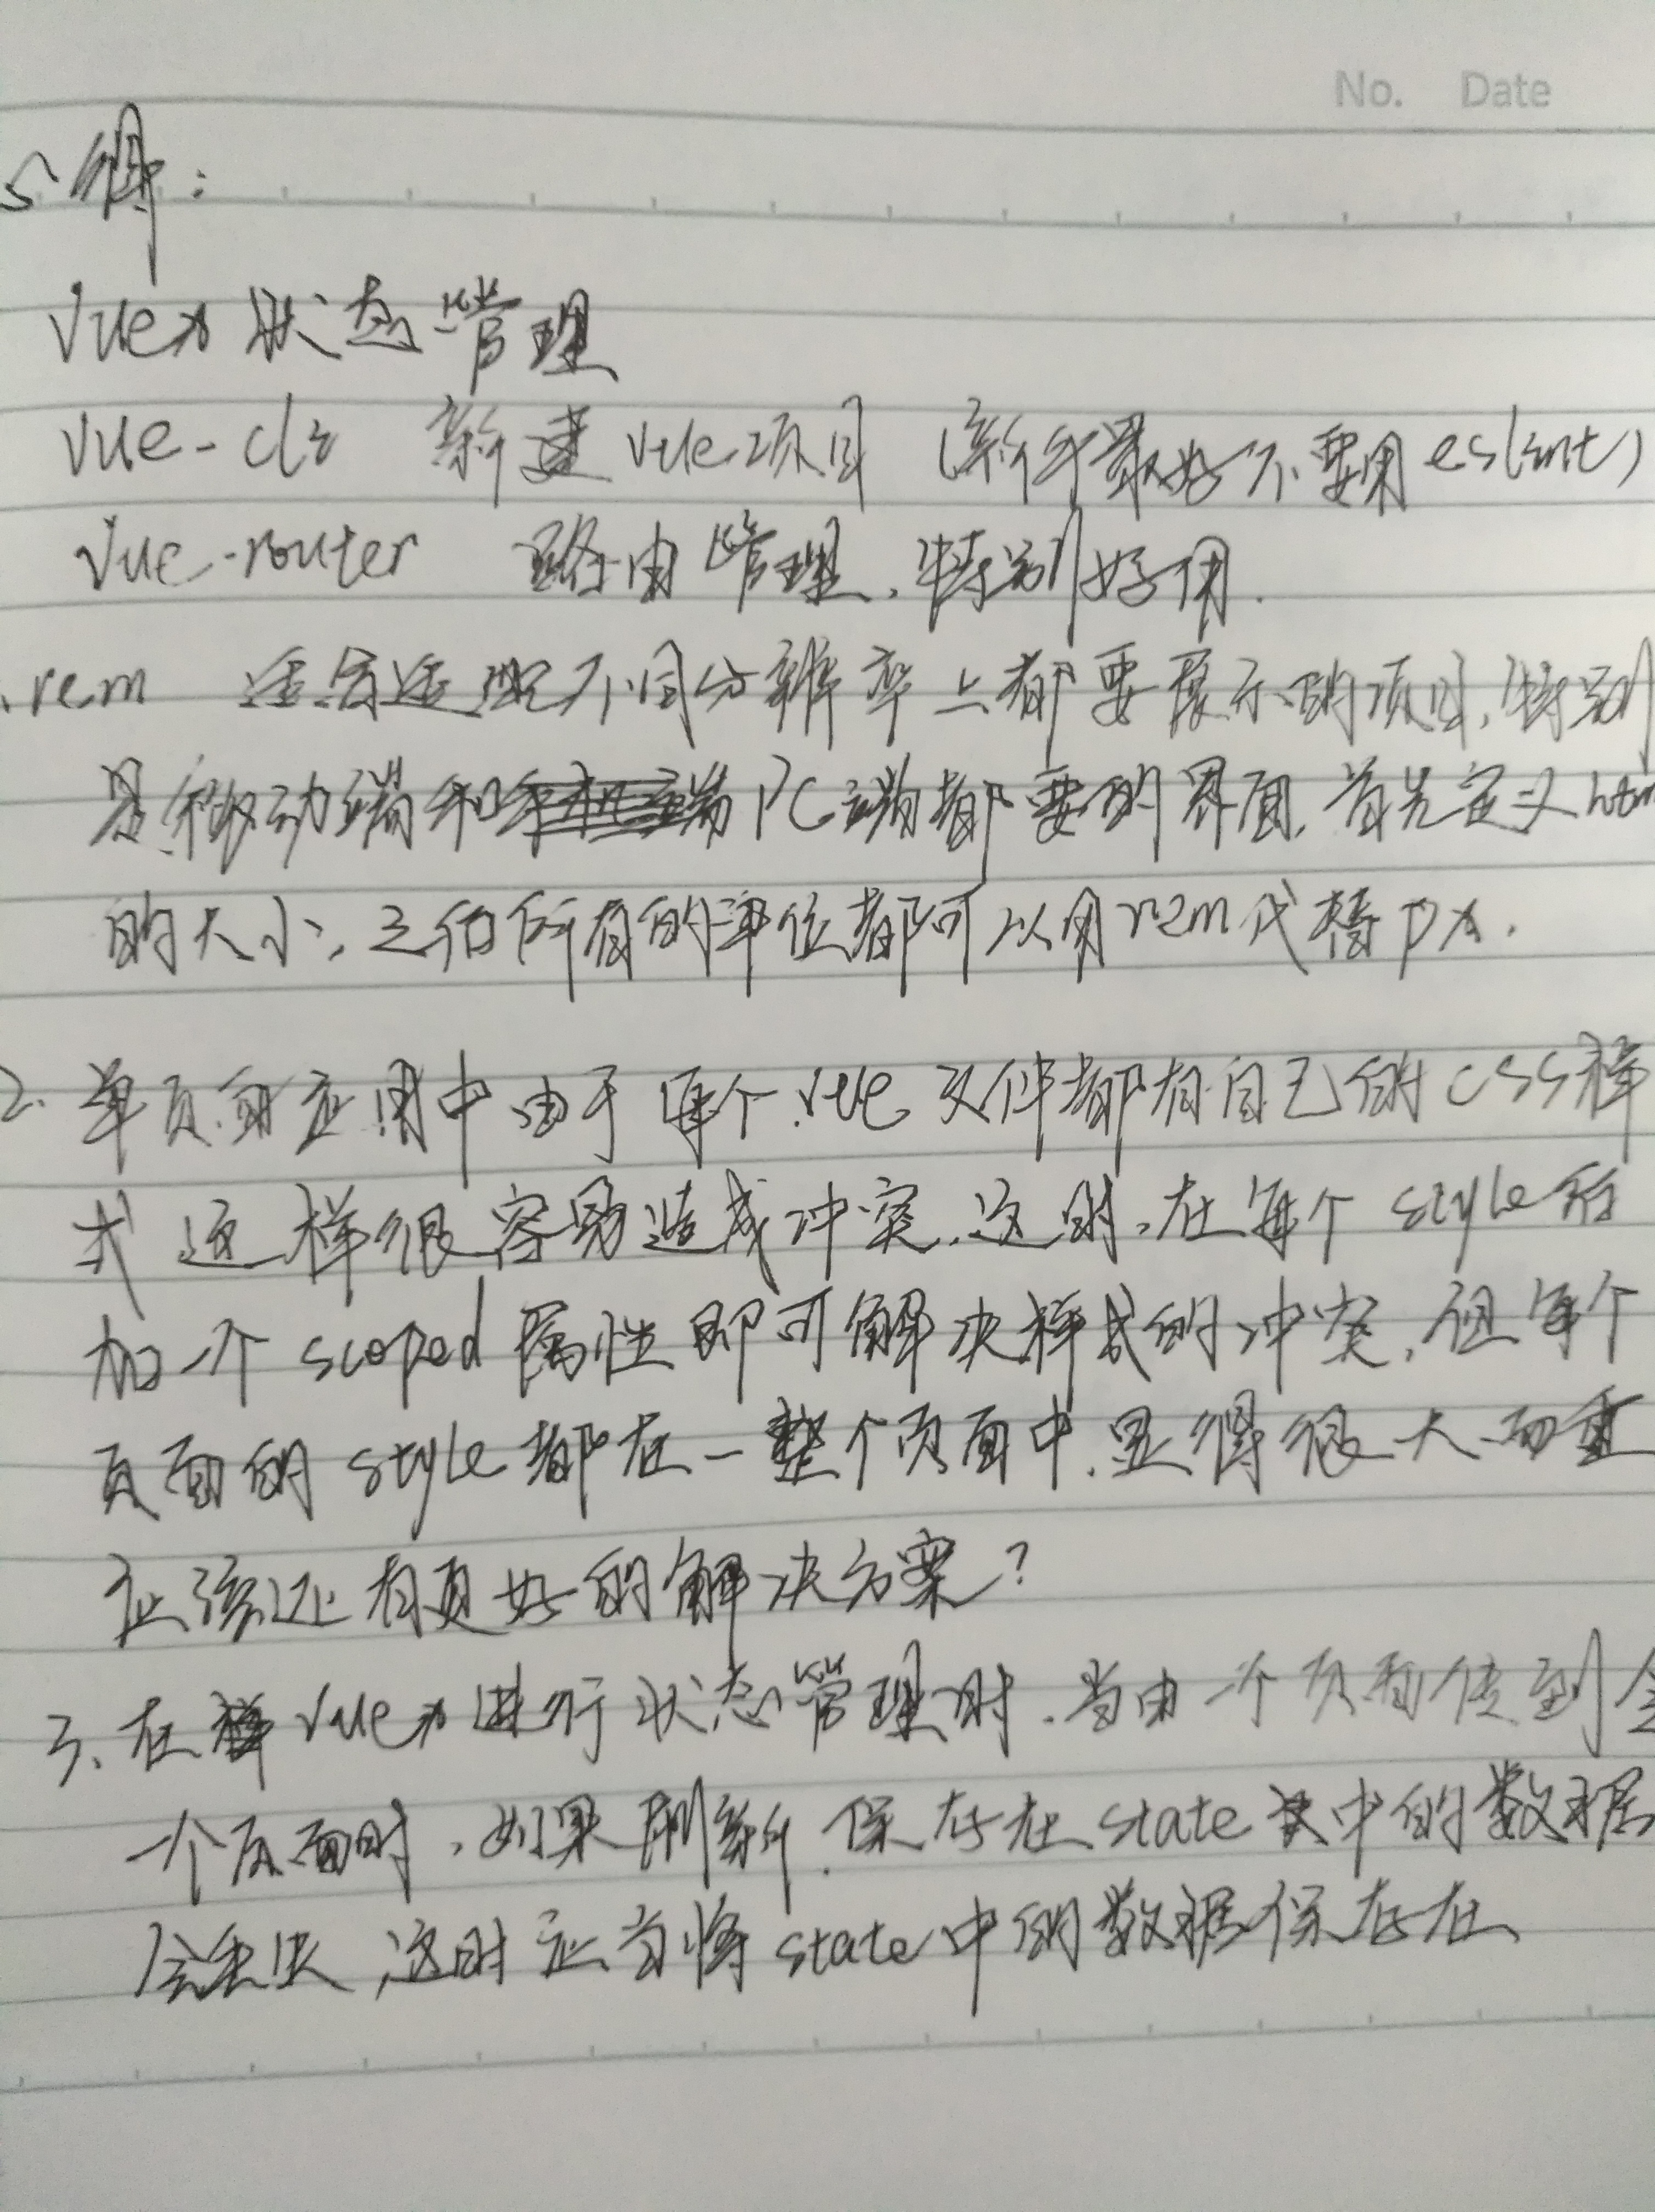 No. Date
了解：
Vuex 状态管理
vue-cli 新建vue项目 （新手最好不要用eslint）
vue-router 路由管理，特别好用.
.rem 适合适配不同分辨率上都要展示的项目，特别
是移动端和 PC端都要的界面，首先定义htm
的大小，之后所有的单位都可以用rem代替px.
2. 单页面应用中由于每个.vue文件都有自己的css样
式 这样很容易造成冲突，这时，在每个style后
加一个scoped属性即可解决样式的冲突，但每个
页面的style都在一整个页面中，显得很大而重
应该还有更好的解决方案？
3、在 Vuex进行状态管理时，当由一个页面传到
一个页面时，如果刷新，保存在state 中的数据
会丢失，这时应当将state中的数据保存在